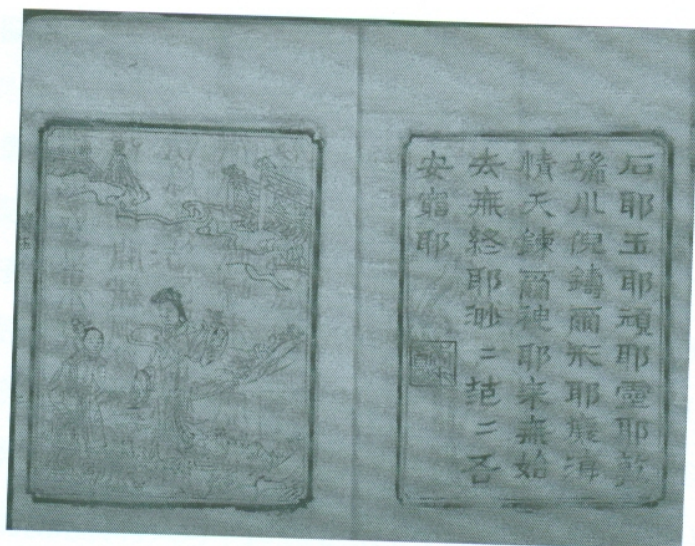 石耶玉耶頑耶靈耶乾
端巛倪鑄爾形耶癡海
情天鍊爾神耶來無始
去無終耶渺二茫二吾
安窮耶